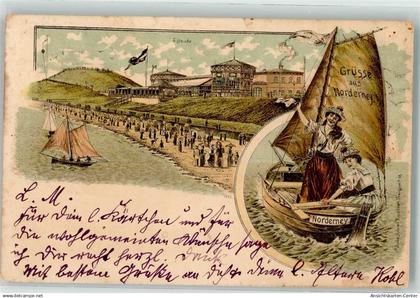 Grüsse
aus
Norderney
Norderney
L. M.
Für Dein l. Kärtchen und für
die wohlgemeinten Wünsche sage
ich Dir recht herzl. Dank
Mit besten Grüßen an Dich u. Deine l. Eltern
www.ansichtskarten-center.de